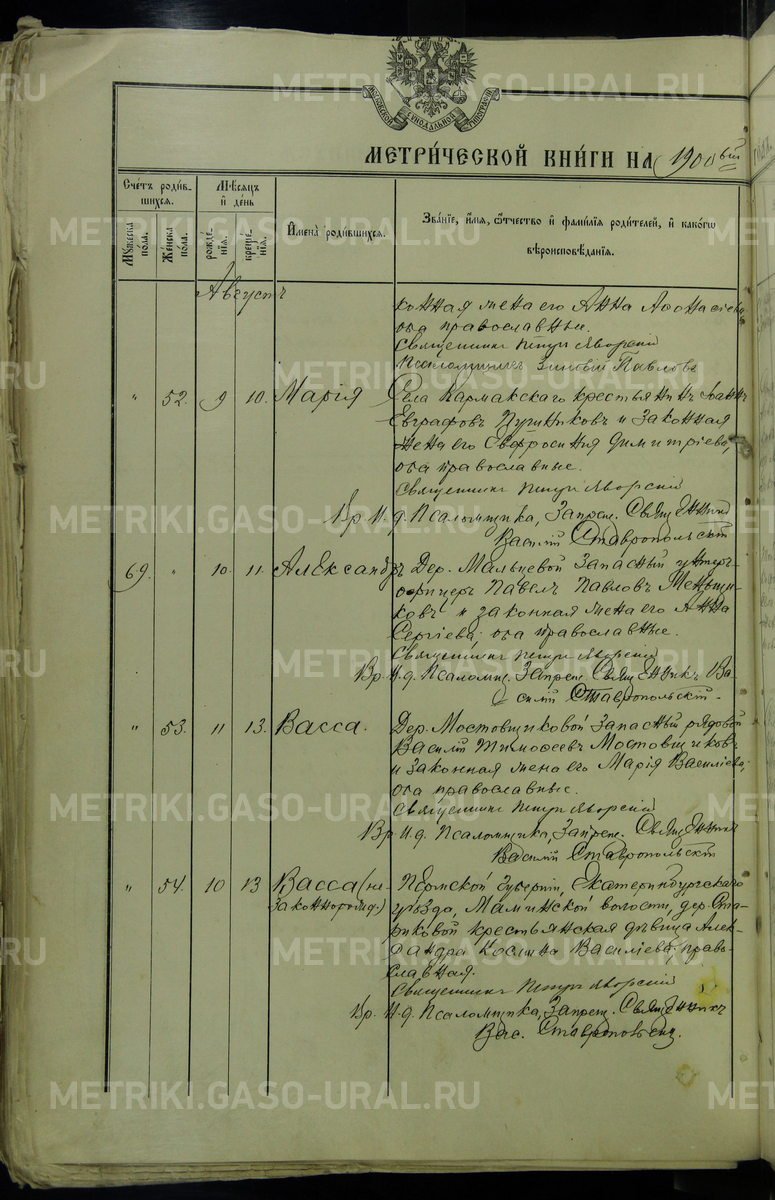 МОСКОВСКОЙ СѴНОДАЛЬНОЙ ТИПОГРАФІИ
МЕТРИ́ЧЕСКОЙ КНИ́ГИ НА 1900ый
Сче́тъ роди́в-
шихся.
Му́жеска по́ла.
Же́нска по́ла.
Мѣ́сяцъ
и҆ де́нь
рожде́-
нїѧ.
креще́-
нїѧ.
И҆мена̀ роди́вшихся.
Зва́нїе, и҆́мѧ, ѻ҆́тчество и҆ фами́лїѧ роди́телей, и҆ како́гѡ
вѣроисповѣ́данїѧ.
Августъ
конная жена его Анна Аѳонасіева,
оба православные.
Священникъ Петръ Яворскій
Псаломщикъ Зиновій Павловъ
" 52. 9 10. Марія Села Кармакскаго крестьянинъ Іоаннъ
Евграфовъ Пушниковъ и законная
жена его Евфросинія Димитріева,
оба православные.
Священникъ Петръ Яворскій
Вр. И. д. Псаломщика, Запрещ. Священникъ
Василій Ставропольскій
69. " 10. 11. Александръ Дер. Мальцевой Запасный унтеръ-
офицеръ Павелъ Павловъ Меньщи-
ковъ и законная жена его Анна
Сергіева; оба православные.
Священникъ Петръ Яворскій
Вр. И. д. Псаломщ. Запрещ. Священникъ Ва-
силій Ставропольскій
" 53. 11 13. Васса. Дер. Мостовщиковой Запасный рядовой
Василій Тимоѳеевъ Мостовщиковъ
и законная жена его Марія Василіева;
оба православные.
Священникъ Петръ Яворскій
Вр. И. д. Псаломщика, Запрещ. Священникъ
Василій Ставропольскій
" 54. 10 13 Васса (не- Пермской Губерніи, Екатеринбургскаго
законнорожд.) уѣзда, Маминской волости, дер.
крестьянская дѣвица Алек-
сандра Косьмина Василіева, право-
славная.
Священникъ Петръ Яворскій
Вр. И. д. Псаломщика, Запрещ. Священникъ
Вас. Ставропольскій.
METRIKI.GASO-URAL.RU